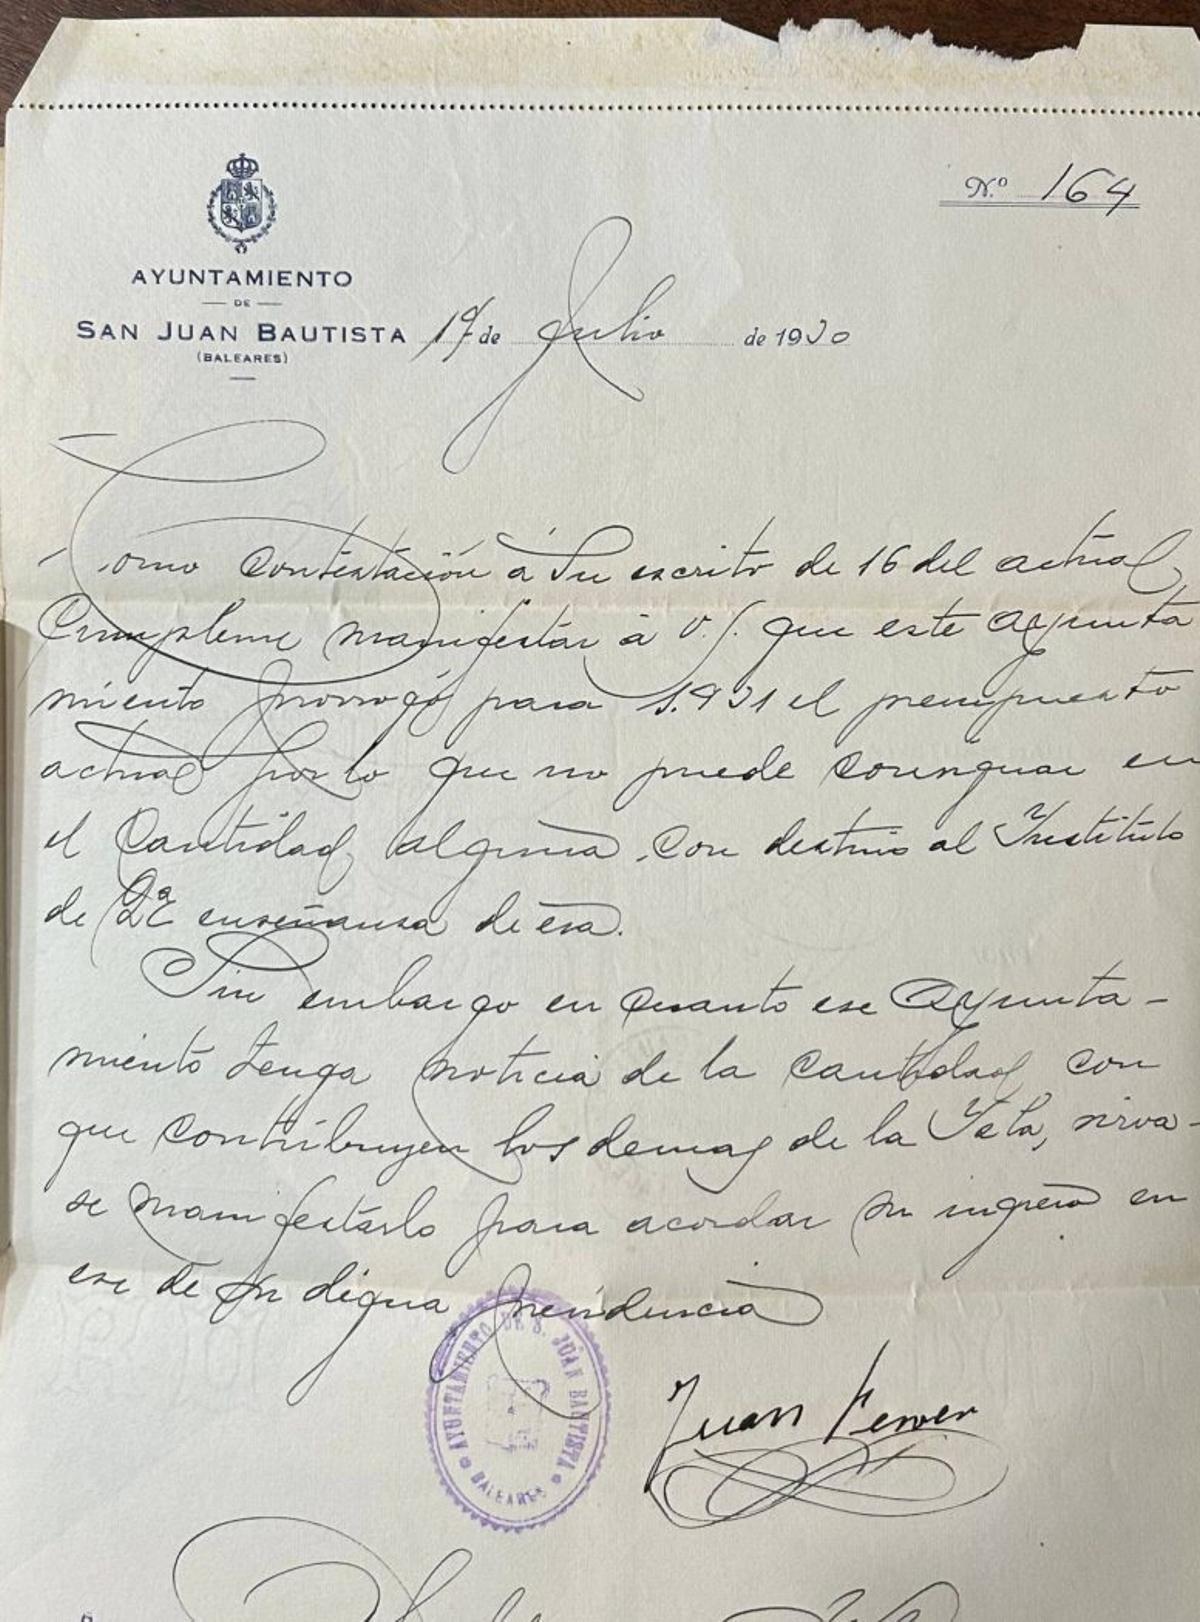 Nº 164
AYUNTAMIENTO
DE
SAN JUAN BAUTISTA
(BALEARES)
17 de Julio de 1930
Como contestación á su escrito de 16 del actual
cumpleme manifestár á V.S. que este Ayunta
miento prorrogó para 1.931 el presupuesto
actual por lo que no puede consignar en
el cantidad alguna con destino al Instituto
de 2ª enseñansa de esa.
Sin embargo en cuanto ese Ayunta-
miento tenga noticia de la cantidad con
que contribuyen los demas de la Isla, sirva-
se manifestárlo para acordar su ingreso en
ese de su digna presidencia
AYUNTAMIENTO DE S. JUAN BAUTISTA
BALEARES
Juan Ferrer